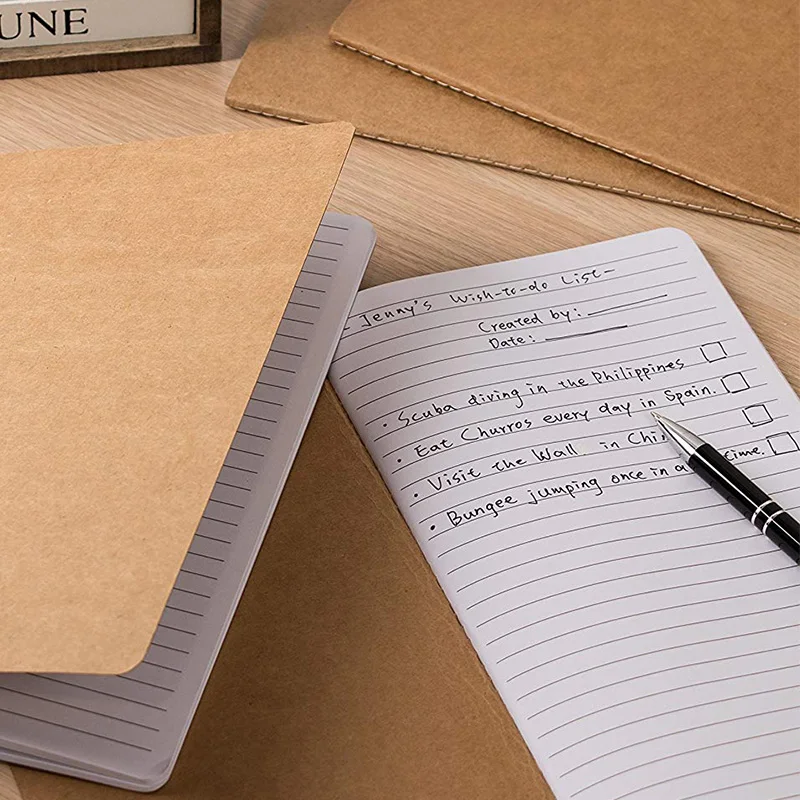 UNE
- Jenny's Wish-to-do List -
Created by:
Date:
• Scuba diving in the Philippines
• Eat Churros every day in Spain.
• Visit the Wall in Chi
• Bungee jumping once in a time.